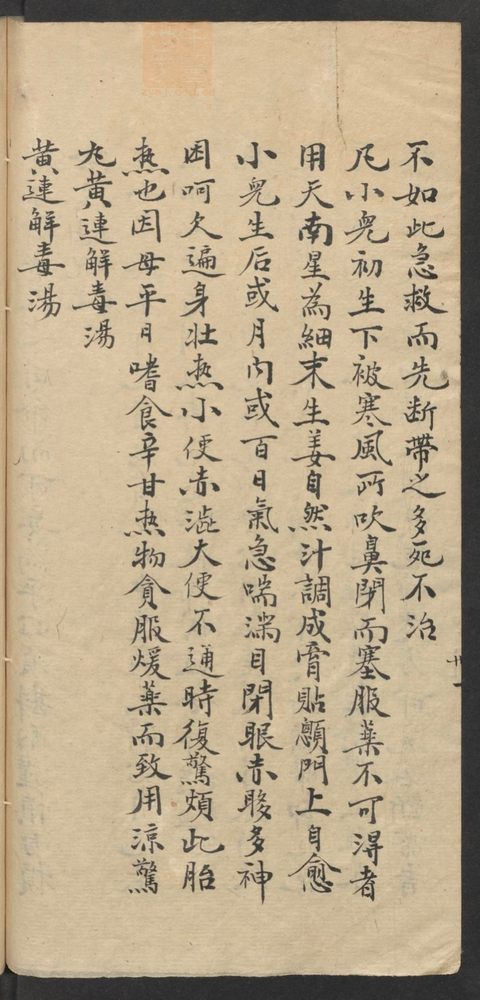 不如此急救而先断帶之多死不治
凡小兒初生下被寒風所吹鼻閉而塞服薬不可淂者
用天南星為細末生姜自然汁調成膏貼顖門上自愈
小兒生后或月内或百日氣急喘满目閉眼赤眵多神
困呵欠遍身壮热小便赤澁大便不通時復驚煩此胎
热也因母平日嗜食辛甘热物貪服煖薬而致用涼驚
丸黄連解毒湯
黄連解毒湯
廿一